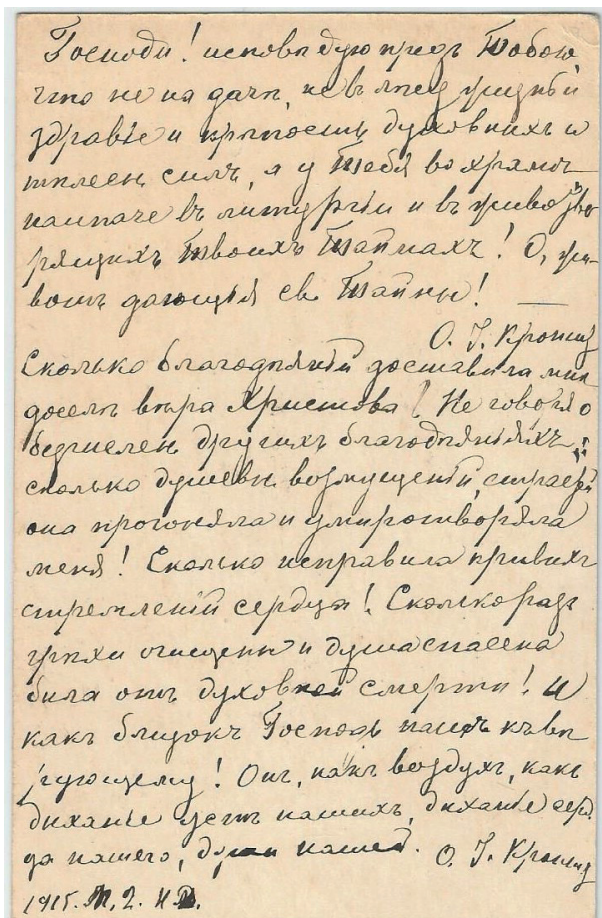 Господи! исповѣдую предъ Тобою,
что не на дачѣ, не въ лѣсу жизнь и
здравіе и крѣпость духовныхъ и
тѣлесн силъ, а у Тебя во храмѣ
наипаче въ литургіи и въ живо тво
рящихъ Твоихъ Тайнахъ! О, жи-
вотъ дающія св. Тайны! —
О. І. Кроншт
Сколько благодѣяній доставила мнѣ
доселѣ вѣра Христова! Не говоря о
безчислен другихъ благодѣяніяхъ:
сколько душевн возмущеній, страстей
она прогоняла и умиротворяла
меня! Сколько исправила кривыхъ
стремленій сердца! Сколько разъ
грѣхи очищены и душа спасена
была отъ духовной смерти! И
какъ близокъ Господь нашъ къ вѣ
рующему! Онъ, какъ воздухъ, какъ
дыханіе устъ нашихъ, дыханіе серд
ца нашего, души нашей. О. І. Кроншт
1915. М. 2. Н.